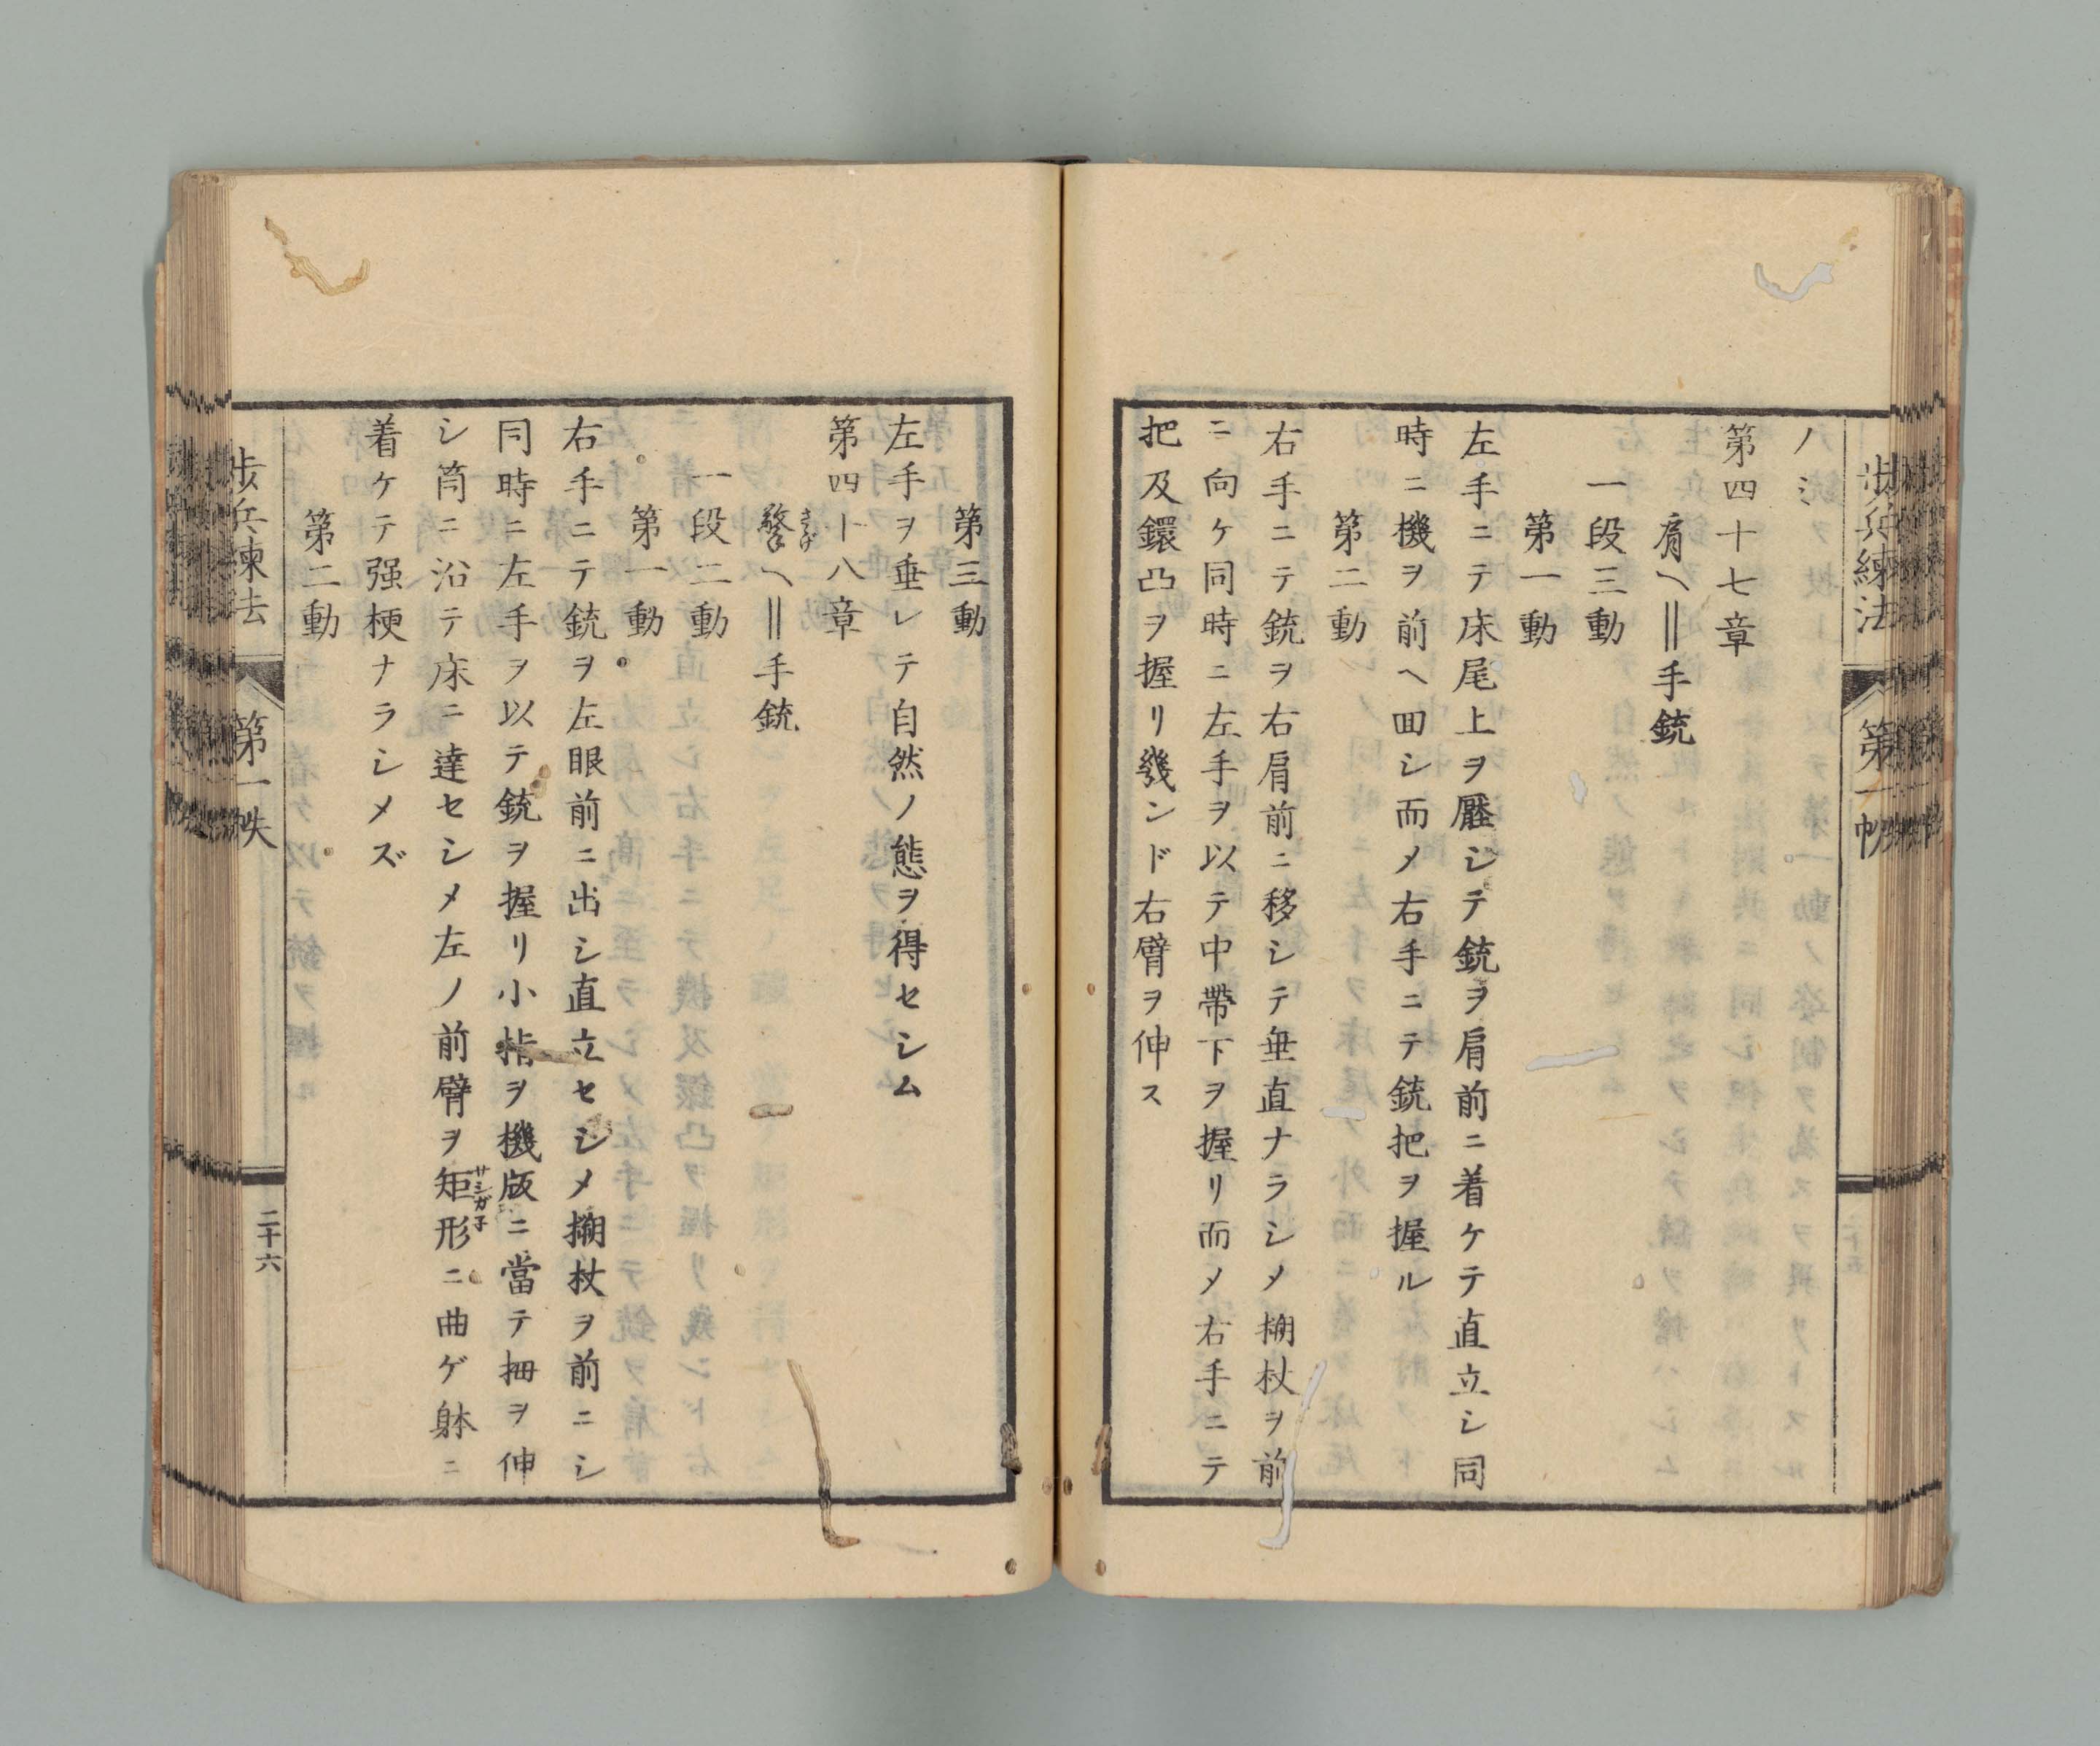 歩兵練法 第一帙
ノミ
第四十七章
肩ヘ‖手銃
一段三動
第一動
左手ニテ床尾上ヲ壓シテ銃ヲ肩前ニ着ケテ直立シ同
時ニ機ヲ前ヘ回シ而メ右手ニテ銃把ヲ握ル
第二動
右手ニテ銃ヲ右肩前ニ移シテ垂直ナラシメ搠杖ヲ前
ニ向ケ同時ニ左手ヲ以テ中帶下ヲ握リ而メ右手ニテ
把及鐶凸ヲ握リ幾ンド右臂ヲ伸ス
第三動
左手ヲ垂レテ自然ノ態ヲ得セシム
第四十八章
擎ヘ‖手銃
さゝげ
一段二動
第一動
右手ニテ銃ヲ左眼前ニ出シ直立セシメ搠杖ヲ前ニシ
同時ニ左手ヲ以テ銃ヲ握リ小指ヲ機版ニ當テ拇ヲ伸
シ筒ニ沿テ床ニ達セシメ左ノ前臂ヲ矩形ニ曲ゲ躰ニ
サシガ子
着ケテ强梗ナラシメズ
第二動
歩兵練法 第一帙 二十六